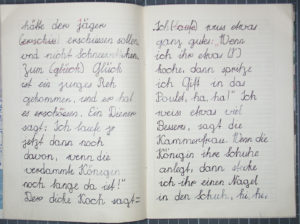 hätte der jäger
(erschiss) erschiessen sollen
und nicht Schneewittchen.
Zum (glück) Glück
ist ein junges Reh
gekommen, und er hat
es erschossen. Ein Diener
sagt: Ich laufe jo
jetzt dann noch
davon, wenn die
verdammte Königin
noch lange da ist!"
Der dicke Koch sagt:
Ich weiss etwas
ganz gutes: Wenn
ich ihr etwas (?)
koche, dann spritze
ich Gift in das
Poulet, ha, ha!" Ich
weiss etwas viel
Bessers, sagt die
Kammerfrau. Wenn die
Königin ihre Schuhe
anlegt, dann stecke
ich ihr einen Nagel
in den Schuh, hi, hi,